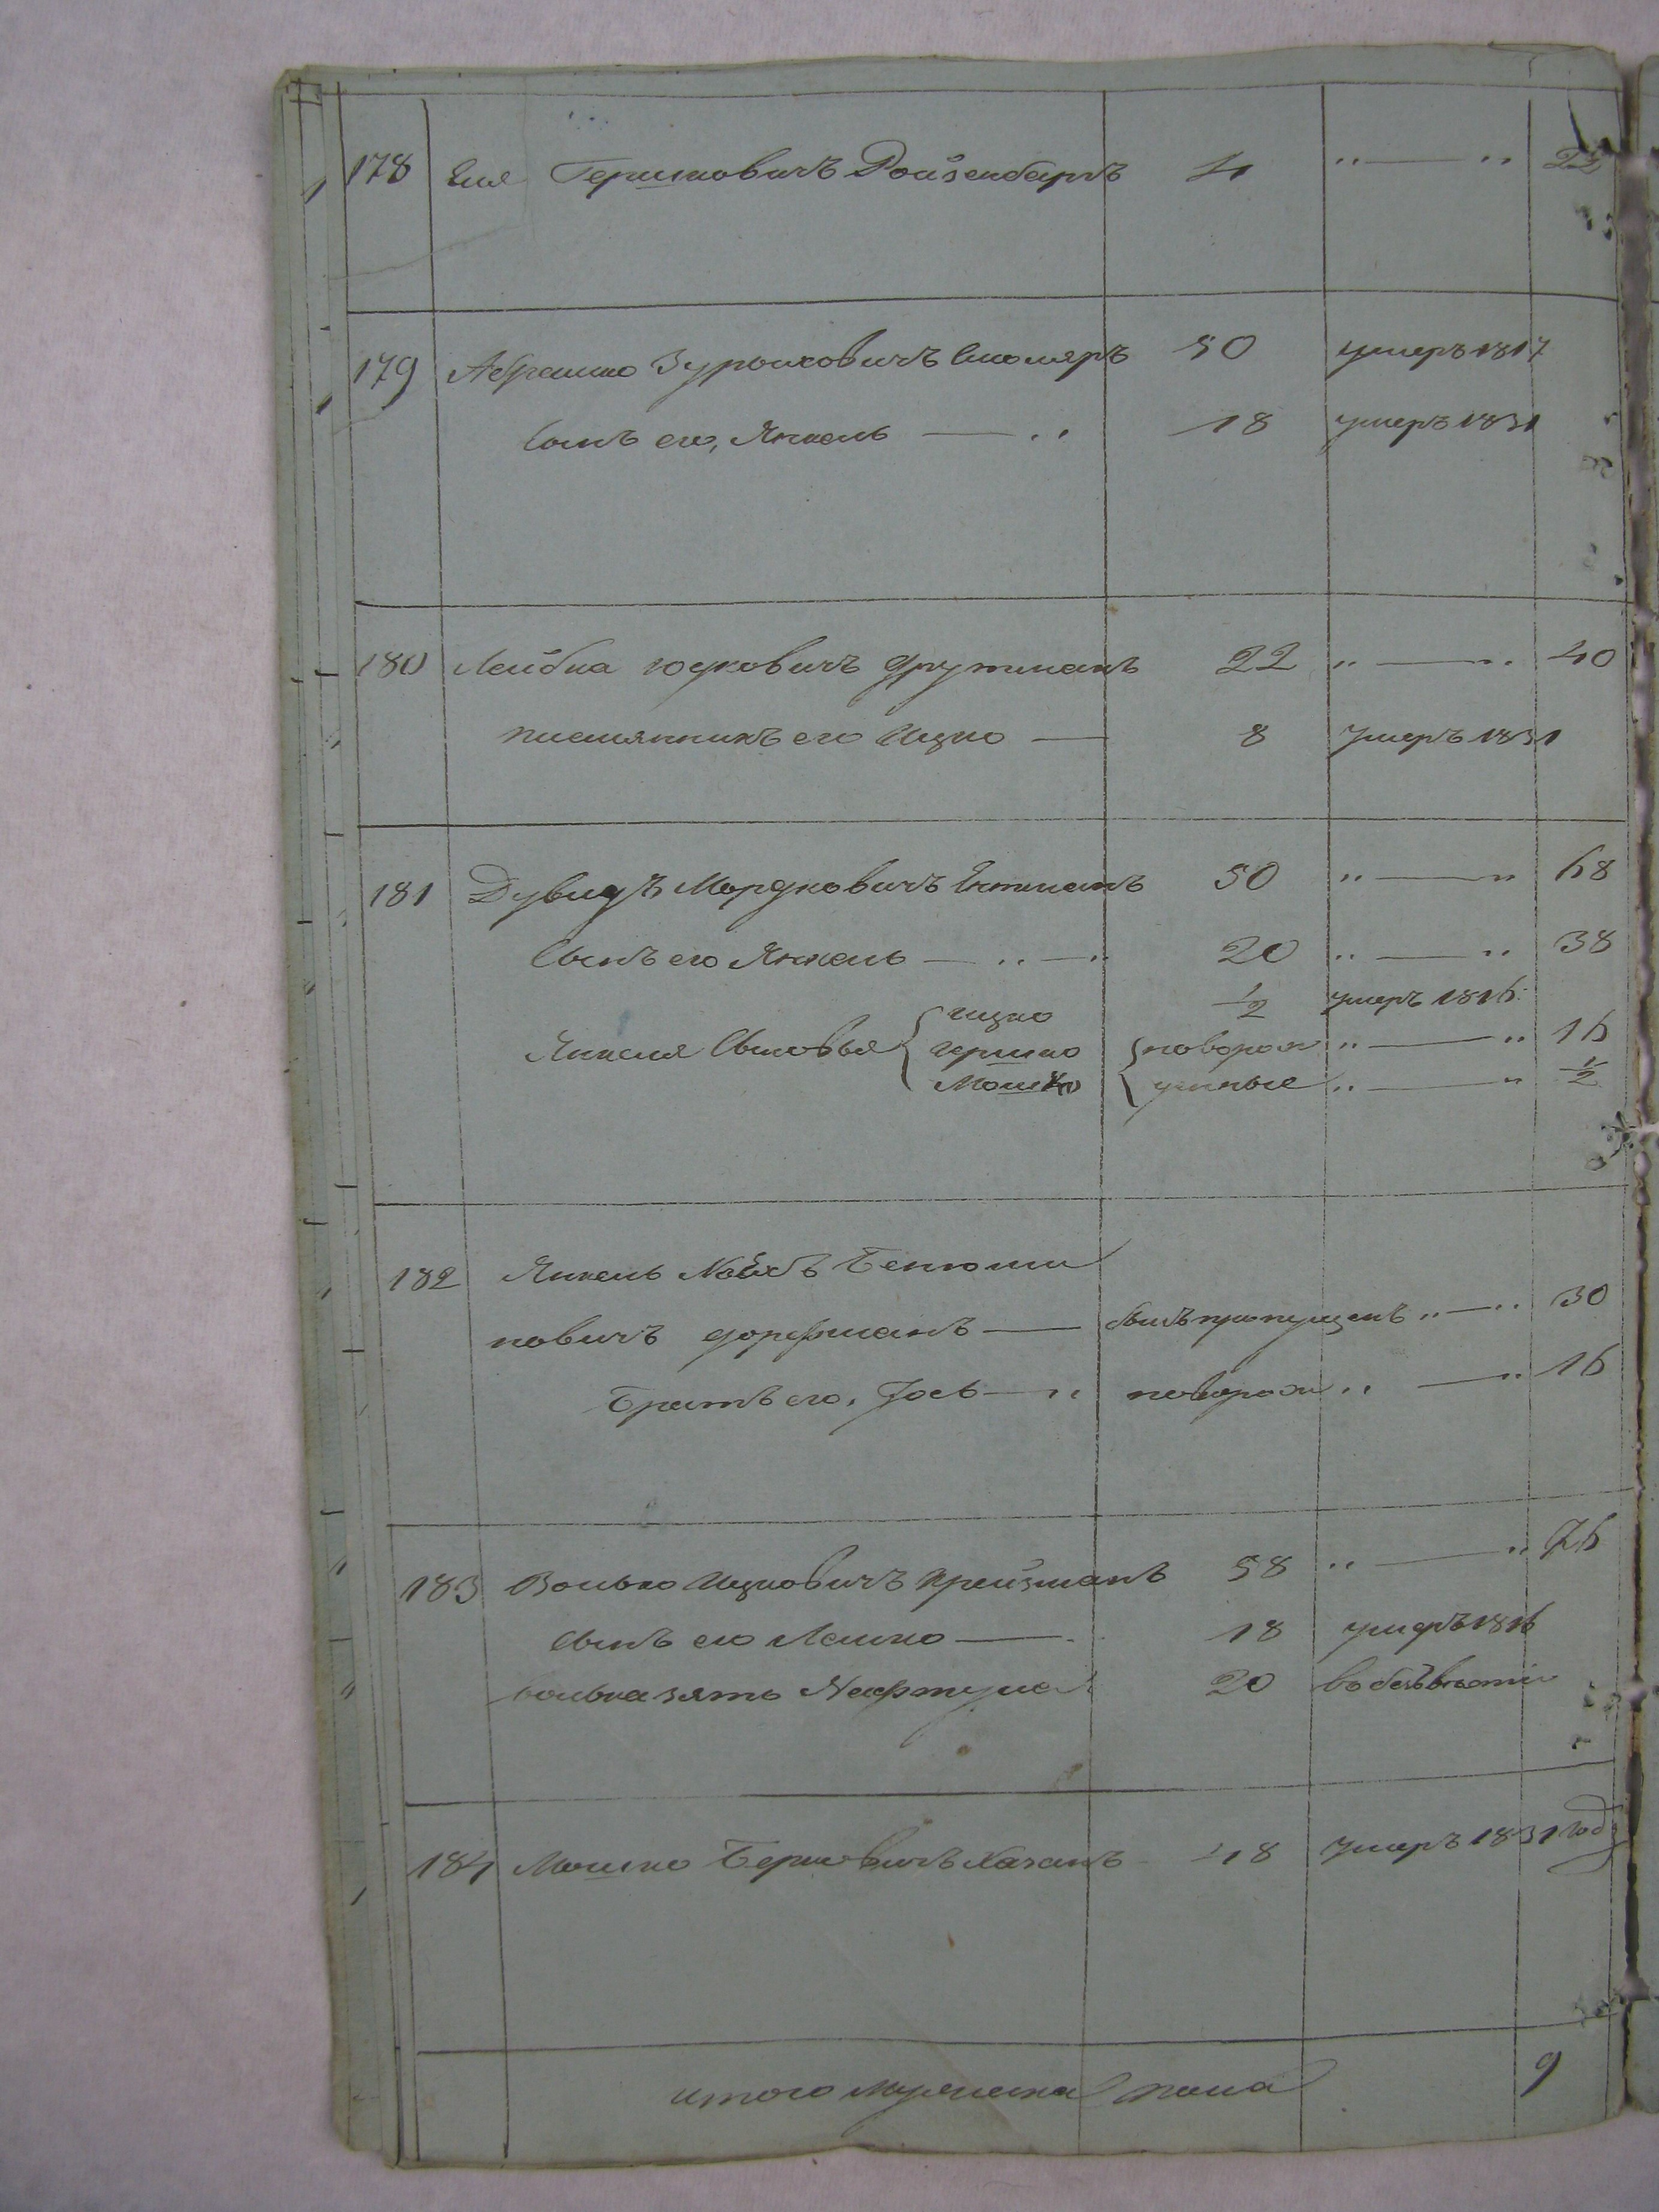 178 Еля Гершковичъ Ройзенбергъ 4 " — " 22
179 Абрамко Зурыховичъ Столяръ 50 умеръ 1817
Сынъ его, Янкель — " 18 умеръ 1831
180 Лейбка Юдковичъ Фрутманъ 22 " — " 40
племянникъ его Ицко — 8 умеръ 1831
181 Дувидъ Мордковичъ 50 " — " 68
Сынъ его Янкель — " — " 20 " — " 38
Янкеля Сыновья { Ицко 1/2 умеръ 1816
Гершко { новорож " — " 16
Мошко { денные " — " 1/2
182 Янкель Бенюми
новичъ Дорфманъ — былъ пропущенъ " — " 30
Братъ его, Іось — " новорож " — " 16
183 Волько Ицковичъ Крейзманъ 58 " — " 76
сынъ его Лейко — 18 умеръ 1816
волька зять Нафтула 20 въ бѣзвѣсти
184 Мошко Берковичъ Хазанъ 48 умеръ 1831 году
итого мужеска пола 9